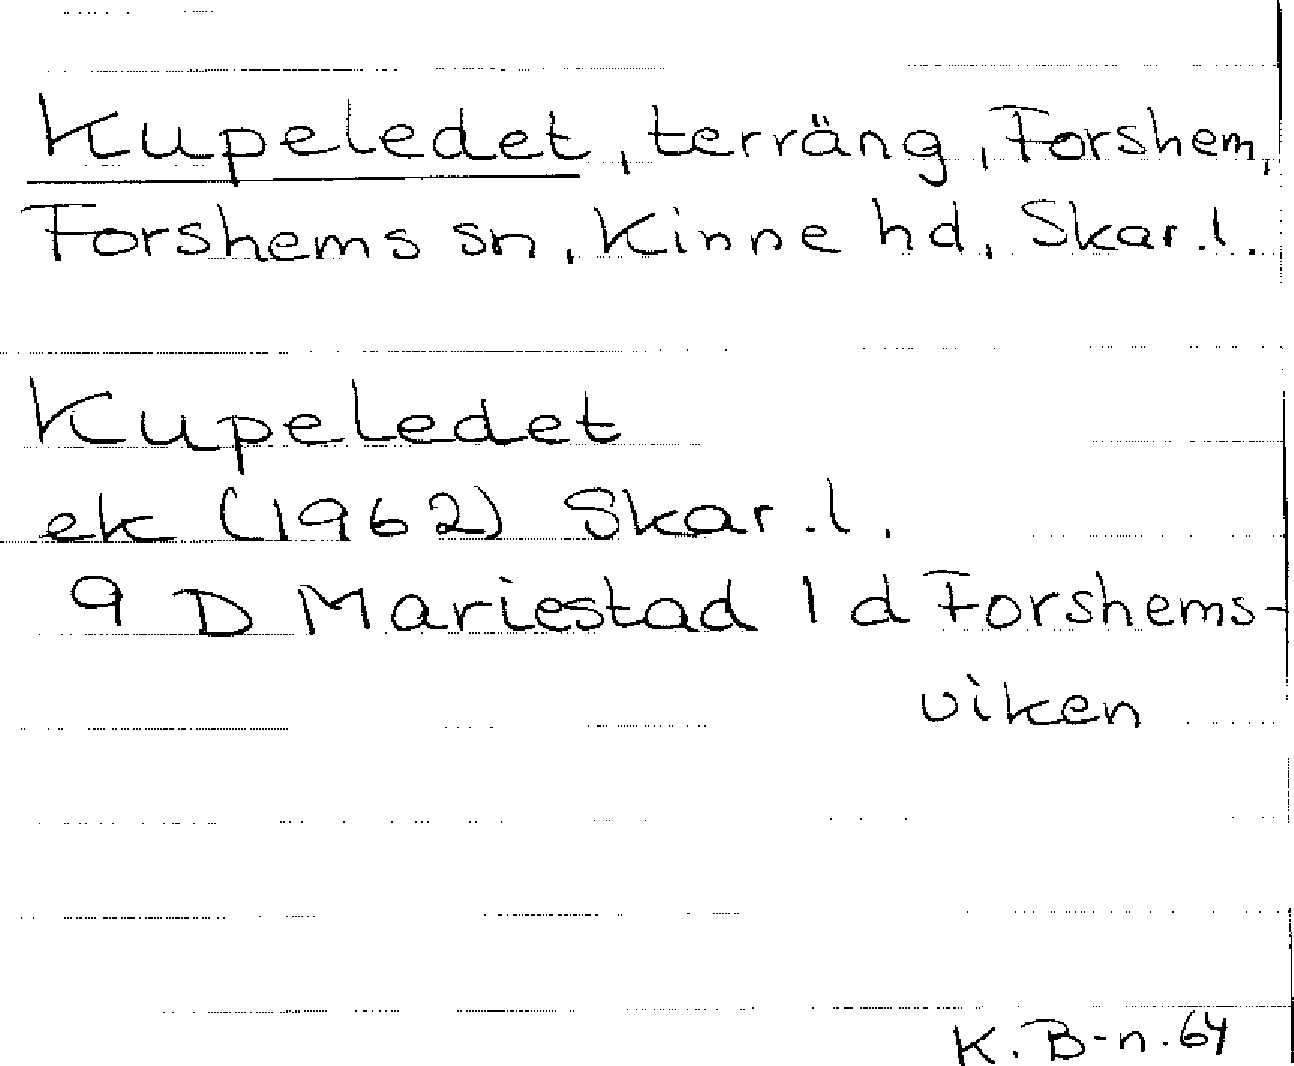 Kupeledet, terräng, Forshem,
Forshems sn, Kinne hd, Skar.l.
Kupeledet
ek (1962) Skar.l.
9 D Mariestad 1 d Forshems-
viken
K. B-n. 64